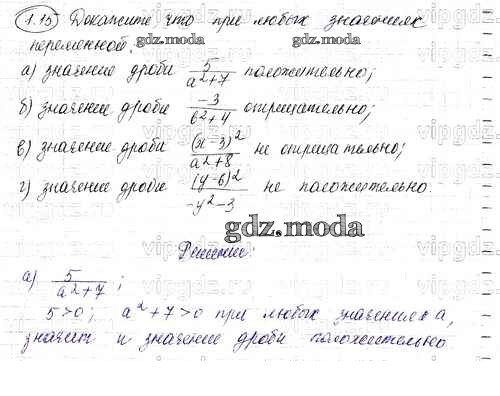 1.15) Докажите что при любых значениях
переменной:
gdz.moda gdz.moda
а) значение дроби 5/(a²+7) положительно;
б) значение дроби -3/(b²+4) отрицательно;
в) значение дроби (x-3)²/(a²+8) не отрицательно;
г) значение дроби (y-6)²/(-y²-3) не положительно.
gdz.moda
Решение:
а) 5/(a²+7);
5>0; a²+7>0 при любых значениях a,
значит и значение дроби положительно